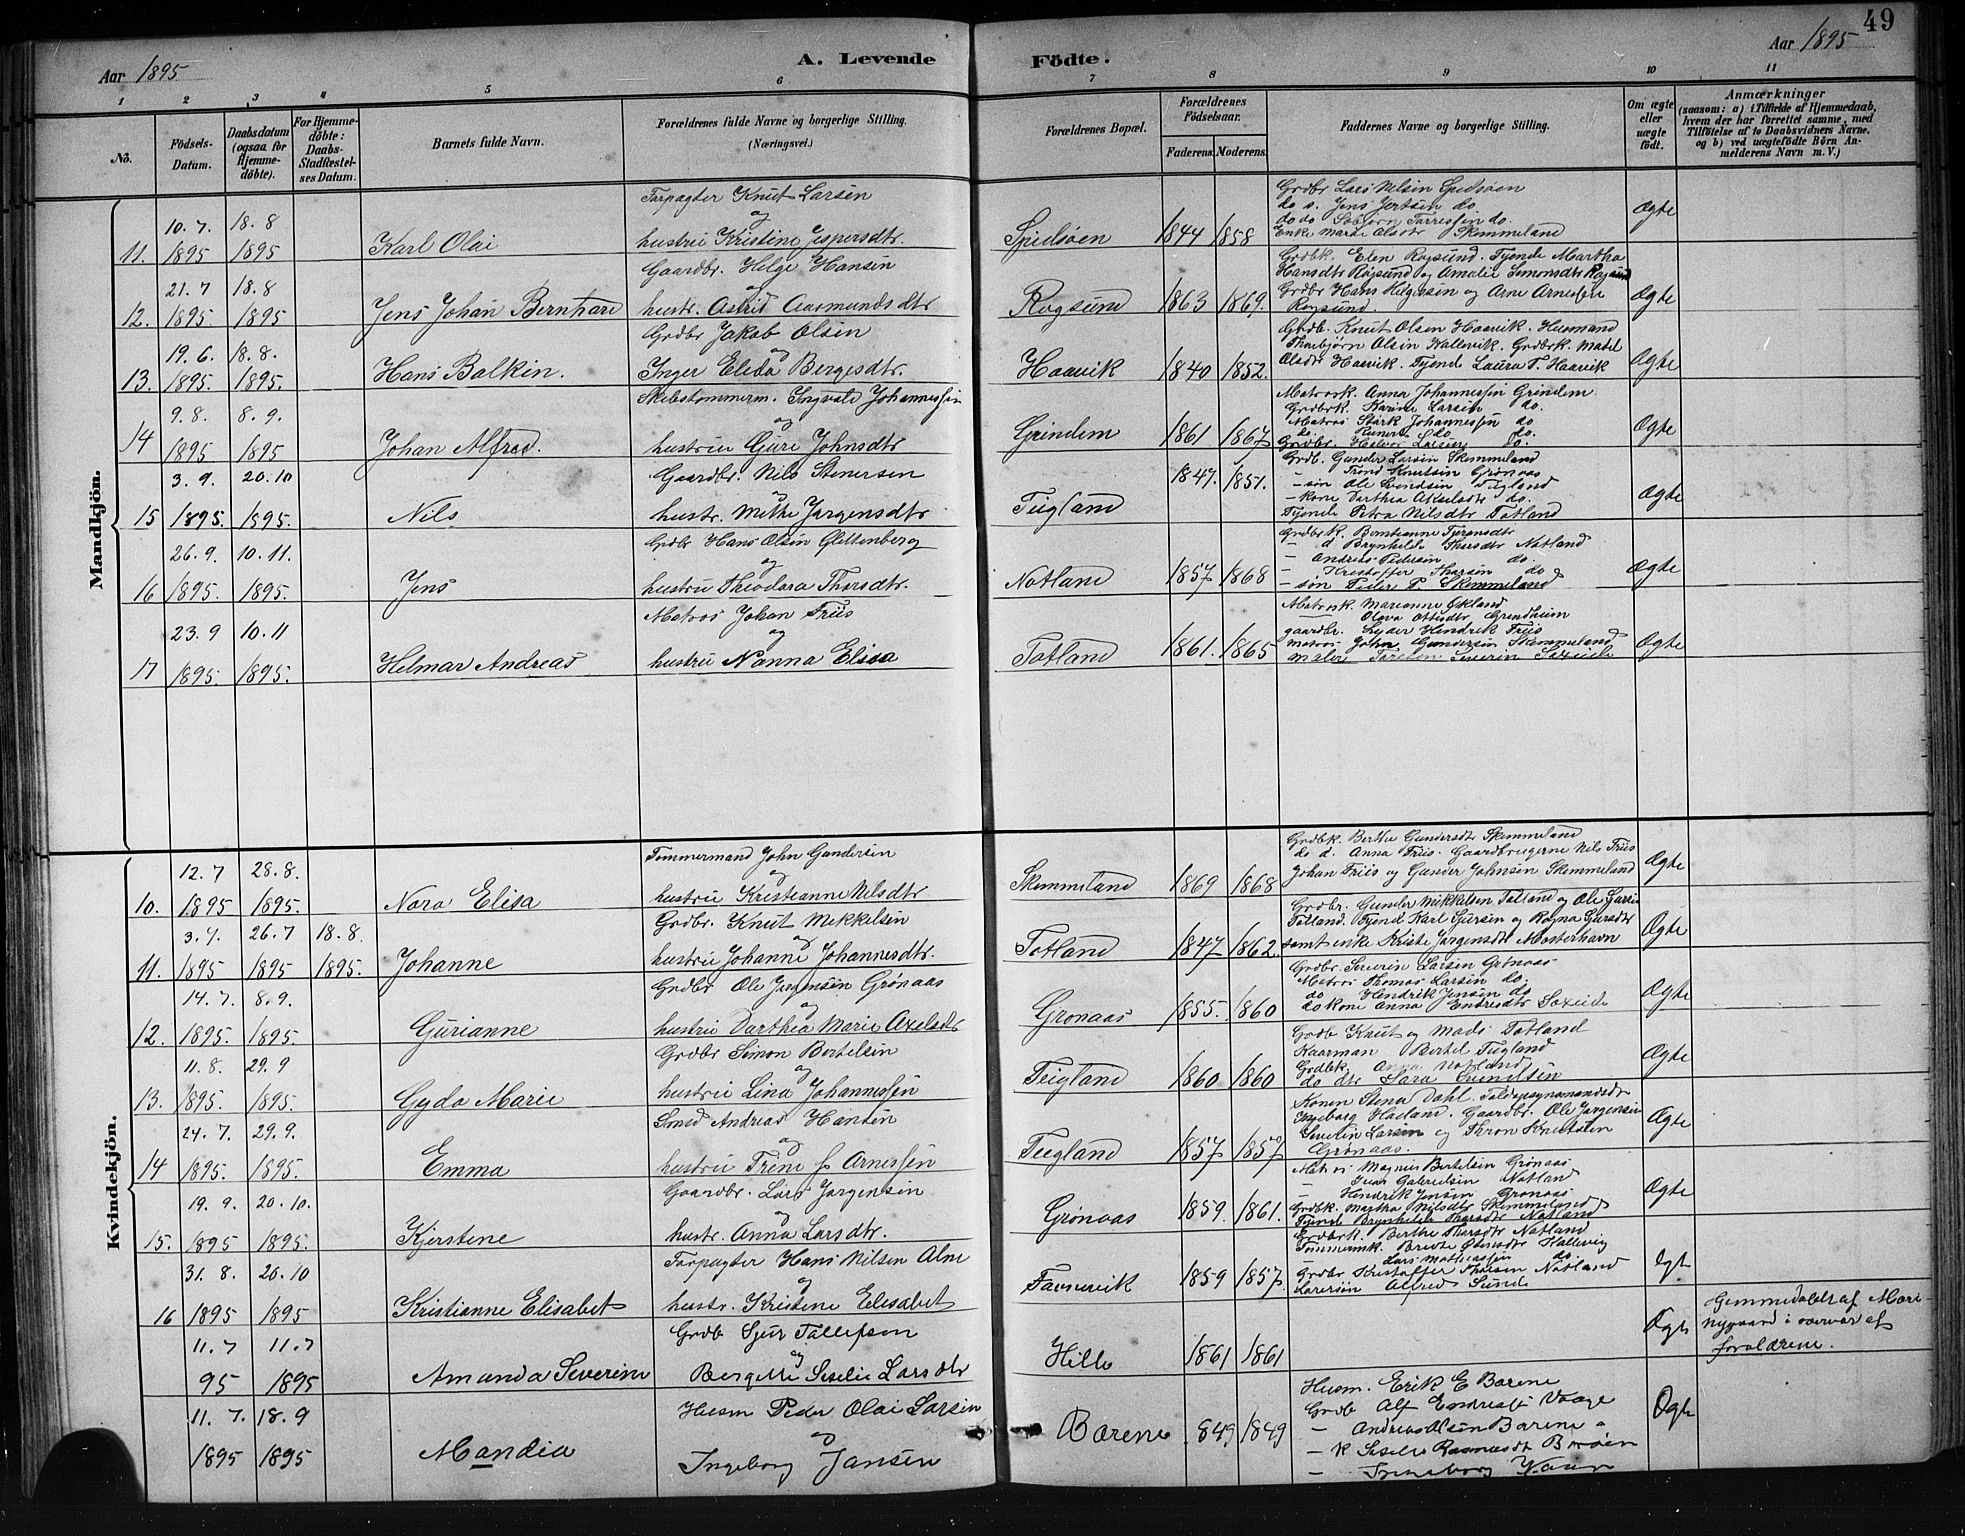 49
Aar 1895
A. Levende
Födte.
Aar 1895
1 2 3 4 5 6 7 8 9 10 11
No.
Födsels-Datum.
Daabsdatum (ogsaa for Hjemmedöbte).
For Hjemmedöbte: Daabs-Stadfæstelses Datum.
Barnets fulde Navn.
Forældrenes fulde Navne og borgerlige Stilling. (Næringsvei.)
Forældrenes Bopæl.
Forældrenes Födselsaar.
Faderens. Moderens.
Faddernes Navne og borgerlige Stilling.
Om ægte eller uægte födt.
Anmærkninger
(saasom: a) i Tilfælde af Hjemmedaab, hvem der har forrettet samme, med Tilföielse af to Daabsvidners Navne. og b) ved uægtefödte Börn Anmelderens Navn m. V.)
Mandkjön.
11. 10.7 1895 18.8 1895 Karl Olai
Forpagter Knut Larsen
og
hustru Kristine Jespersdtr.
Spidsöen 1844 1858
Grdbr Lars Nilsen Spidsöen
do s. Jens do
Enke Marte Olsdtr Skimmeland
Ægte
12. 21.7 1895. 18.8 1895 Jens Johan Bernhard
Gaardbr. Helge Hansen
og
hustr. Astrid Aasmundsdtr
Rogsund 1863 1869.
Grdbk. Elen Rogsund. Tjende Martha
Hansdtr Rogsund og Amalie Simonsdtr Rogsund
Grdbr Hans Helgesen og Arne Arnessen
Rogsund.
Ægte
13. 19.6. 1895. 18.8. 1895. Hans Balkin.
Grdbr Jakob Olsen
og
Inger Elida Bergesdtr.
Haavik 1840 1852.
Grdb. Knut Olsen Haavik. Husmand
Thorbjörn Olsen Kallevik. Grdbrk. Madel
Olsdtr Haavik. Tjend Laura T. Haavik
Ægte
14 9.8. 1895 8.9. 1895 Johan Alfred.
Skibstömmerm. Ingvald Johannessen
og
hustru Gure Johnsdtr
Grindem 1861 1867
Matrosk. Anna Johannessen Grindem
Grdbrk. Karine Larsen do.
Matros Stark Johannessen do
do. Reinert do do.
Grdbr. Halvor Larsen do.
Ægte
15 3.9. 1895. 20.10 1895. Nils
Gaardbr. Nils Stenersen
hustr. Methe Jørgensdtr
Tiigland 1847. 1851.
Grdb. Gunder Larsen Skimmeland
- Trond Knutsen Grönaas
- sön Ole Tiigland
- kone Darthea Akselsdtr do.
Tjende Petra Nilsdtr Totland
Ægte
16 26.9. 1895. 10.11. 1895. Jens
Grdbr Hans Olsen Glettenberg
og
hustru Theodora Thorsdtr.
Notland 1857 1868
- d Brynhilde Thorsdtr Notland
- Andreas Pedersen do.
- Kristoffer Thorsen do
- sön Peder P. Skimmeland
Ægte
17 23.9 1895. 10.11 1895. Helmar Andreas
Matros Johan Friis
og
hustru Nanna Elisa
Totland 1861. 1865
Matrosk. Marianne Økland
gaardbr. Lyder Hendrik Friis
matros John Gundersen Skimmeland
maler Severin
Ægte
Kvindekjön.
10. 12.7 1895 28.8. 1895. Nora Elisa
Tömmermand John Gundersen
og
hustru Kristianne Nilsdtr
Skimmeland 1869 1868
Grdbk. Berthe Gundersdtr Skimmeland
do d. Anna Friis. Gaardbrugerne Nils Friis
Johan Friis og Gunder Johnsen Skimmeland
Ægte
11. 3.7. 1895 26.7 1895 18.8. 1895. Johanne
Grdbr. Knut Mikkelsen
og
hustru Johanne Johannesdtr.
Totland 1847 1862.
Grdbr. Gunder Mikkelsen Totland og Ole
Totland. Tjend Karl og Ragna
samt enke Kristi Jørgensdtr Mosterhavn
Ægte
12. 14.7. 1895. 8.9. 1895. Gurianne
Grdbr Ole Jørgensen Grönaas
og
hustru Darthea Marie Axelsdtr
Grönaas 1855. 1860
Grdbr. Severin Larsen Grönaas
Matros Thomas Larsen do.
do Hendrik Jensen do
do kone Anna Endresdtr
Ægte
13. 11.8. 1895. 29.9 1895. Gyda Marie
Grdbr Simon Bertelsen
og
hustru Lina Johannessen
Teigland 1860 1860
Grdb Knut og Mads Totland
Kaarmand Bertel Tiigland
Grdbk. Anna Notland
do dtr Sara
Ægte
14 24.7. 1895. 29.9. 1895. Emma
Smed Andreas Hansen
og
hustru Trine f Arnessen
Tiigland 1857 1857
Konen Stena Dahl.
Ingeborg Haaland. Gaardbr. Ole Jørgensen
Severin Larsen og Thron Knutsen
Grönaas.
Ægte
15. 19.9. 1895 20.10. 1895. Kjerstene
Gaardbr. Lars Jørgensen
hustr. Anna Larsdtr.
Grönaas 1859. 1861.
Matros Magnus Bertelsen Grönaas
- Gabrielsen Notland
- Hendrik Jensen Grönaas
Grdbk. Martha Nilsdtr Skimmeland
Tjende Brynhilde Thorsdtr Notland
Ægte
16 31.8. 1895 20.10 1895 Kristianne Elisabet
Forpagter Hans Nilsen Alm
og
hustr. Kristene Elisabet
1859 1857.
Grdbrk. Berthe Thorsdtr Notland
Kallevig
Lars Mathiassen do.
Grdbr Kristoffer Thorsen Notland
Lærersön Alfred Sunde
Ægte
11.7 95 11.7 1895 Amanda Severine
Grdb Sjur Tollefsen
og
Bergitte Larsdtr
Hille 1861 1861
Ægte
Hjemmedöbt af Mari
Nygaard i overvær af
foraldrene.
11.7. 1895 18.9 1895 Mandia
Husm Peder Olai Larsen
og
Ingeborg Jansen
Bærene 1849 1849
Husm. Erik E Bærene
Grdb Alf Endresen Vaage
- Andreas Olsen Bærene
- k Rasmusdt
- Ingeborg
Ægte